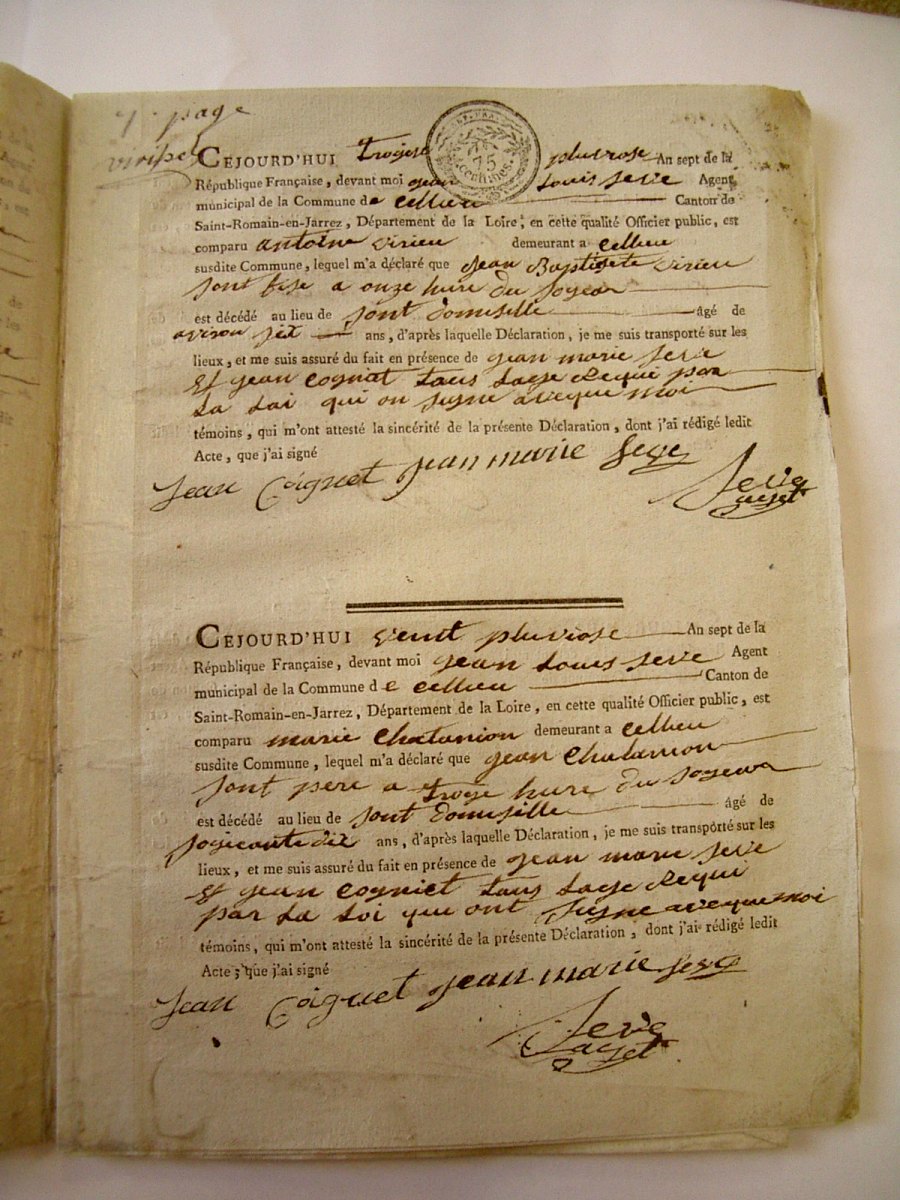 page
CEJOURD'HUI Trogise pluviose An sept de la
RP. FRA.
75
centimes.
République Française, devant moi jean Louis seve Agent
municipal de la Commune de cellieu Canton de
Saint-Romain-en-Jarrez, Département de la Loire, en cette qualité Officier public, est
comparu antoine virieu demeurant a cellieu
susdite Commune, lequel m'a déclaré que jean Baptiste virieu
sont fise a onze hure du soyear
est décédé au lieu de sont domisille âgé de
ans, d'après laquelle Déclaration, je me suis transporté sur les
lieux, et me suis assuré du fait en présence de jean marie seve
Et jean cognat tous Lage Requi par
La Loi qui on signe aveque moi
témoins, qui m'ont attesté la sincérité de la présente Déclaration, dont j'ai rédigé ledit
Acte, que j'ai signé
jean Coignet jean marie seve
Seve
aget
CEJOURD'HUI vent pluviose An sept de la
République Française, devant moi jean Louis seve Agent
municipal de la Commune de cellieu Canton de
Saint-Romain-en-Jarrez, Département de la Loire, en cette qualité Officier public, est
comparu marie Chatanion demeurant a cellieu
susdite Commune, lequel m'a déclaré que jean Chatanion
sont pere a Troye hure du soyear
est décédé au lieu de sont domisille âgé de
soysante dix ans, d'après laquelle Déclaration, je me suis transporté sur les
lieux, et me suis assuré du fait en présence de jean marie seve
Et jean cogniet tous Lage Requi
par La Loi qui ont signe aveque moi
témoins, qui m'ont attesté la sincérité de la présente Déclaration, dont j'ai rédigé ledit
Acte, que j'ai signé
jean Coignet jean marie seve
Seve
aget